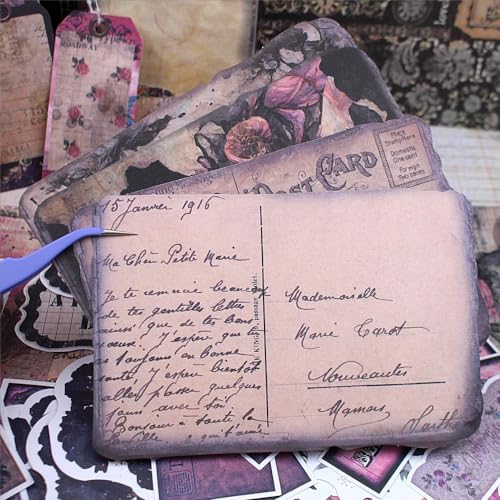 BROADWAY
POST CARD
Place
Stamp Here
Domestic
One cent
Foreign
Two cents
15 Janvier 1916
Ma Chère Petite Marie
Je te remercie beaucoup
de tes gentilles lettres
ainsi que de tes bons
voeux. J'espère que tu
es toujours en bonne
santé J'espère bientôt
aller passer quelques
jours avec toi
Bonjour à toute la
qui t'aime
passage
Mademoiselle
Marie Carot
Nouveautes
Mamers
Sarthe